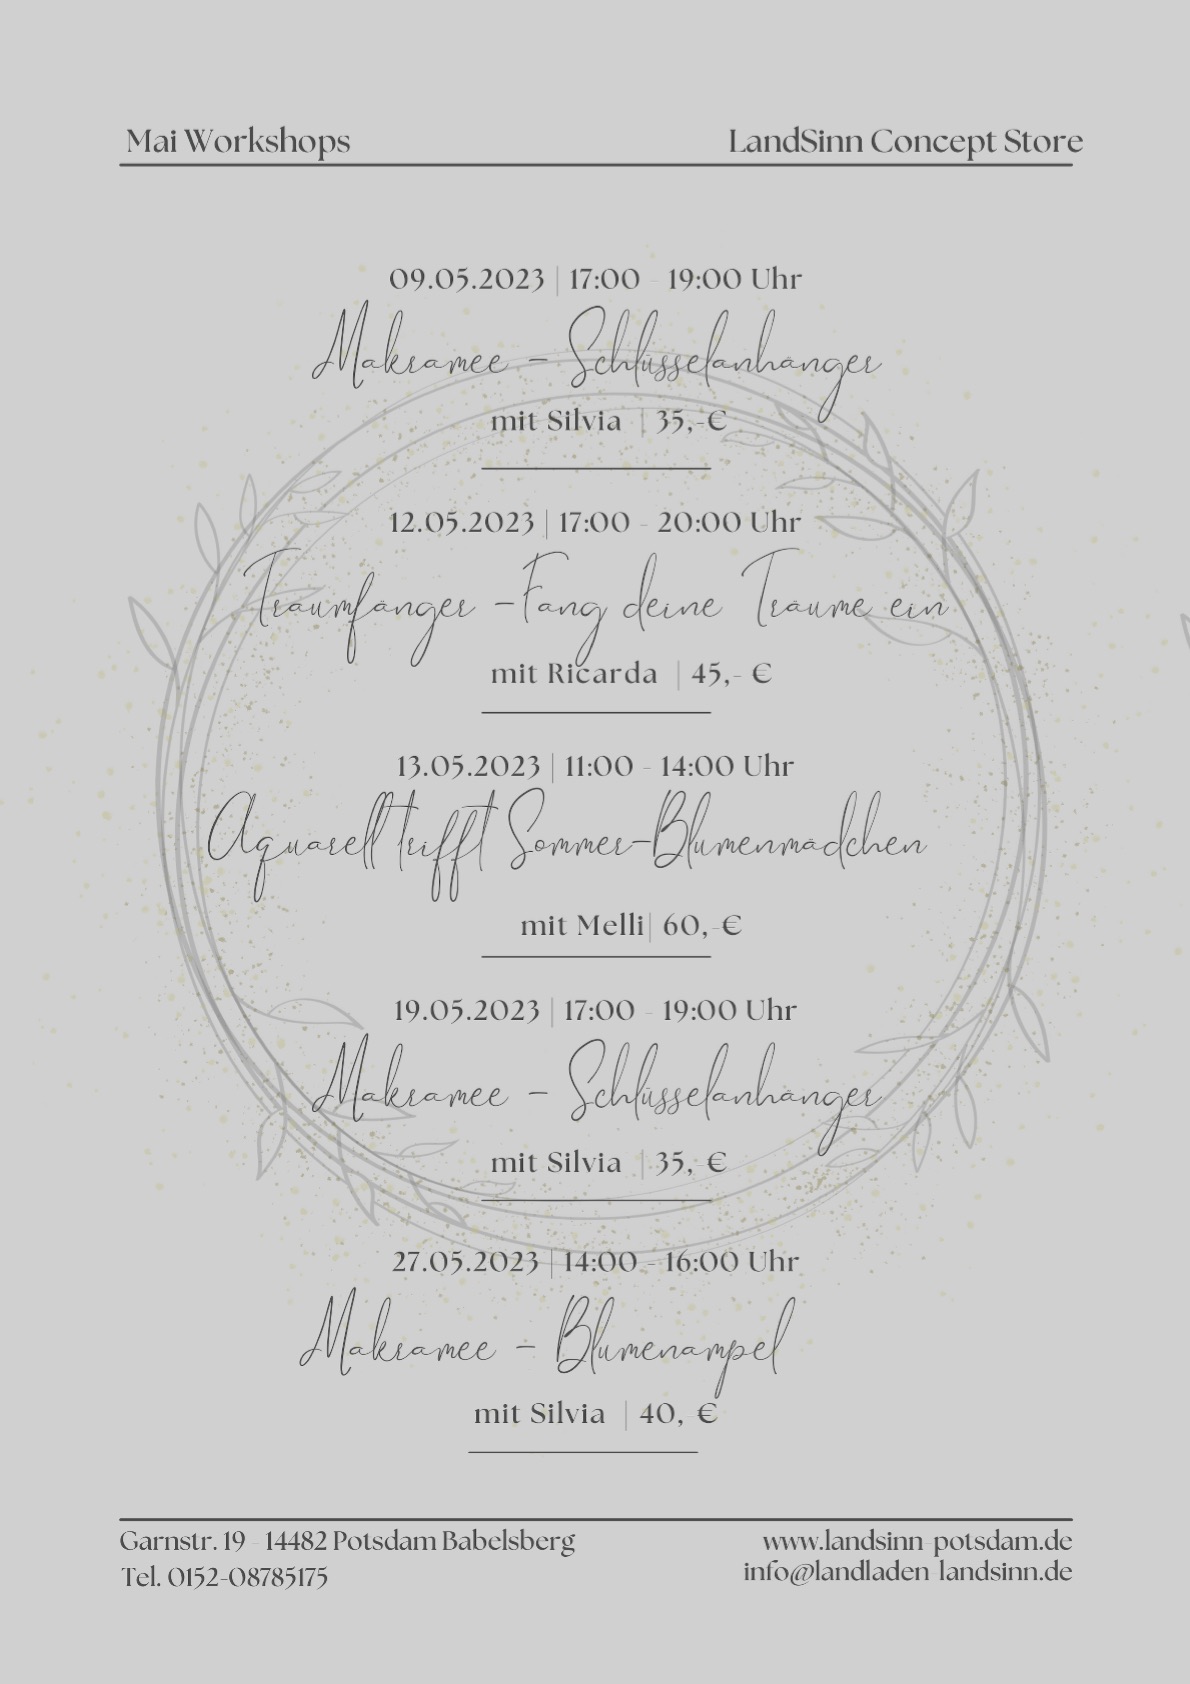 Mai Workshops
LandSinn Concept Store
09.05.2023 | 17:00 - 19:00 Uhr
Makramee - Schlüsselanhänger
mit Silvia | 35,-€
12.05.2023 | 17:00 - 20:00 Uhr
Traumfänger -Fang deine Träume ein
mit Ricarda | 45,- €
13.05.2023 | 11:00 - 14:00 Uhr
Aquarell trifft Sommer-Blumenmädchen
mit Melli| 60,-€
19.05.2023 | 17:00 - 19:00 Uhr
Makramee - Schlüsselanhänger
mit Silvia | 35,-€
27.05.2023 | 14:00 - 16:00 Uhr
Makramee - Blumenampel
mit Silvia | 40,-€
Garnstr. 19 - 14482 Potsdam Babelsberg
Tel. 0152-08785175
www.landsinn-potsdam.de
info@landladen-landsinn.de